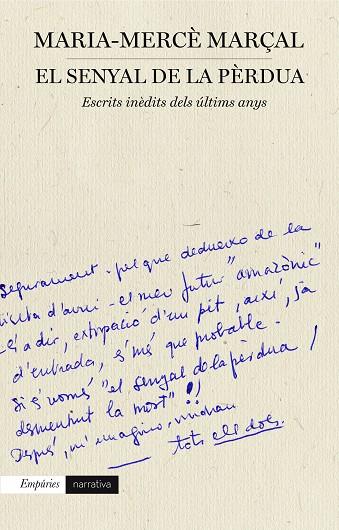 MARIA-MERCÈ MARÇAL
EL SENYAL DE LA PÈRDUA
Escrits inèdits dels últims anys
Segurament - pel que dedueixo de la
visita d'avui - el meu futur "amazònic"
- és a dir, extirpació d'un pit, així, ja
d'entrada, és més que probable.
Si és només "el senyal de la pèrdua /
desmentint la mort"!!
Després, m'imagino, vindran
tots els dols.
Empúries narrativa